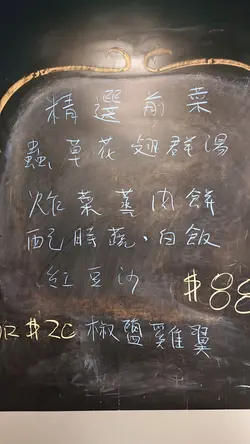 精選前菜
蟲草花翅群湯
炸菜蒸肉餅
配時蔬、白飯
紅豆沙
$88
$20 椒鹽雞翼